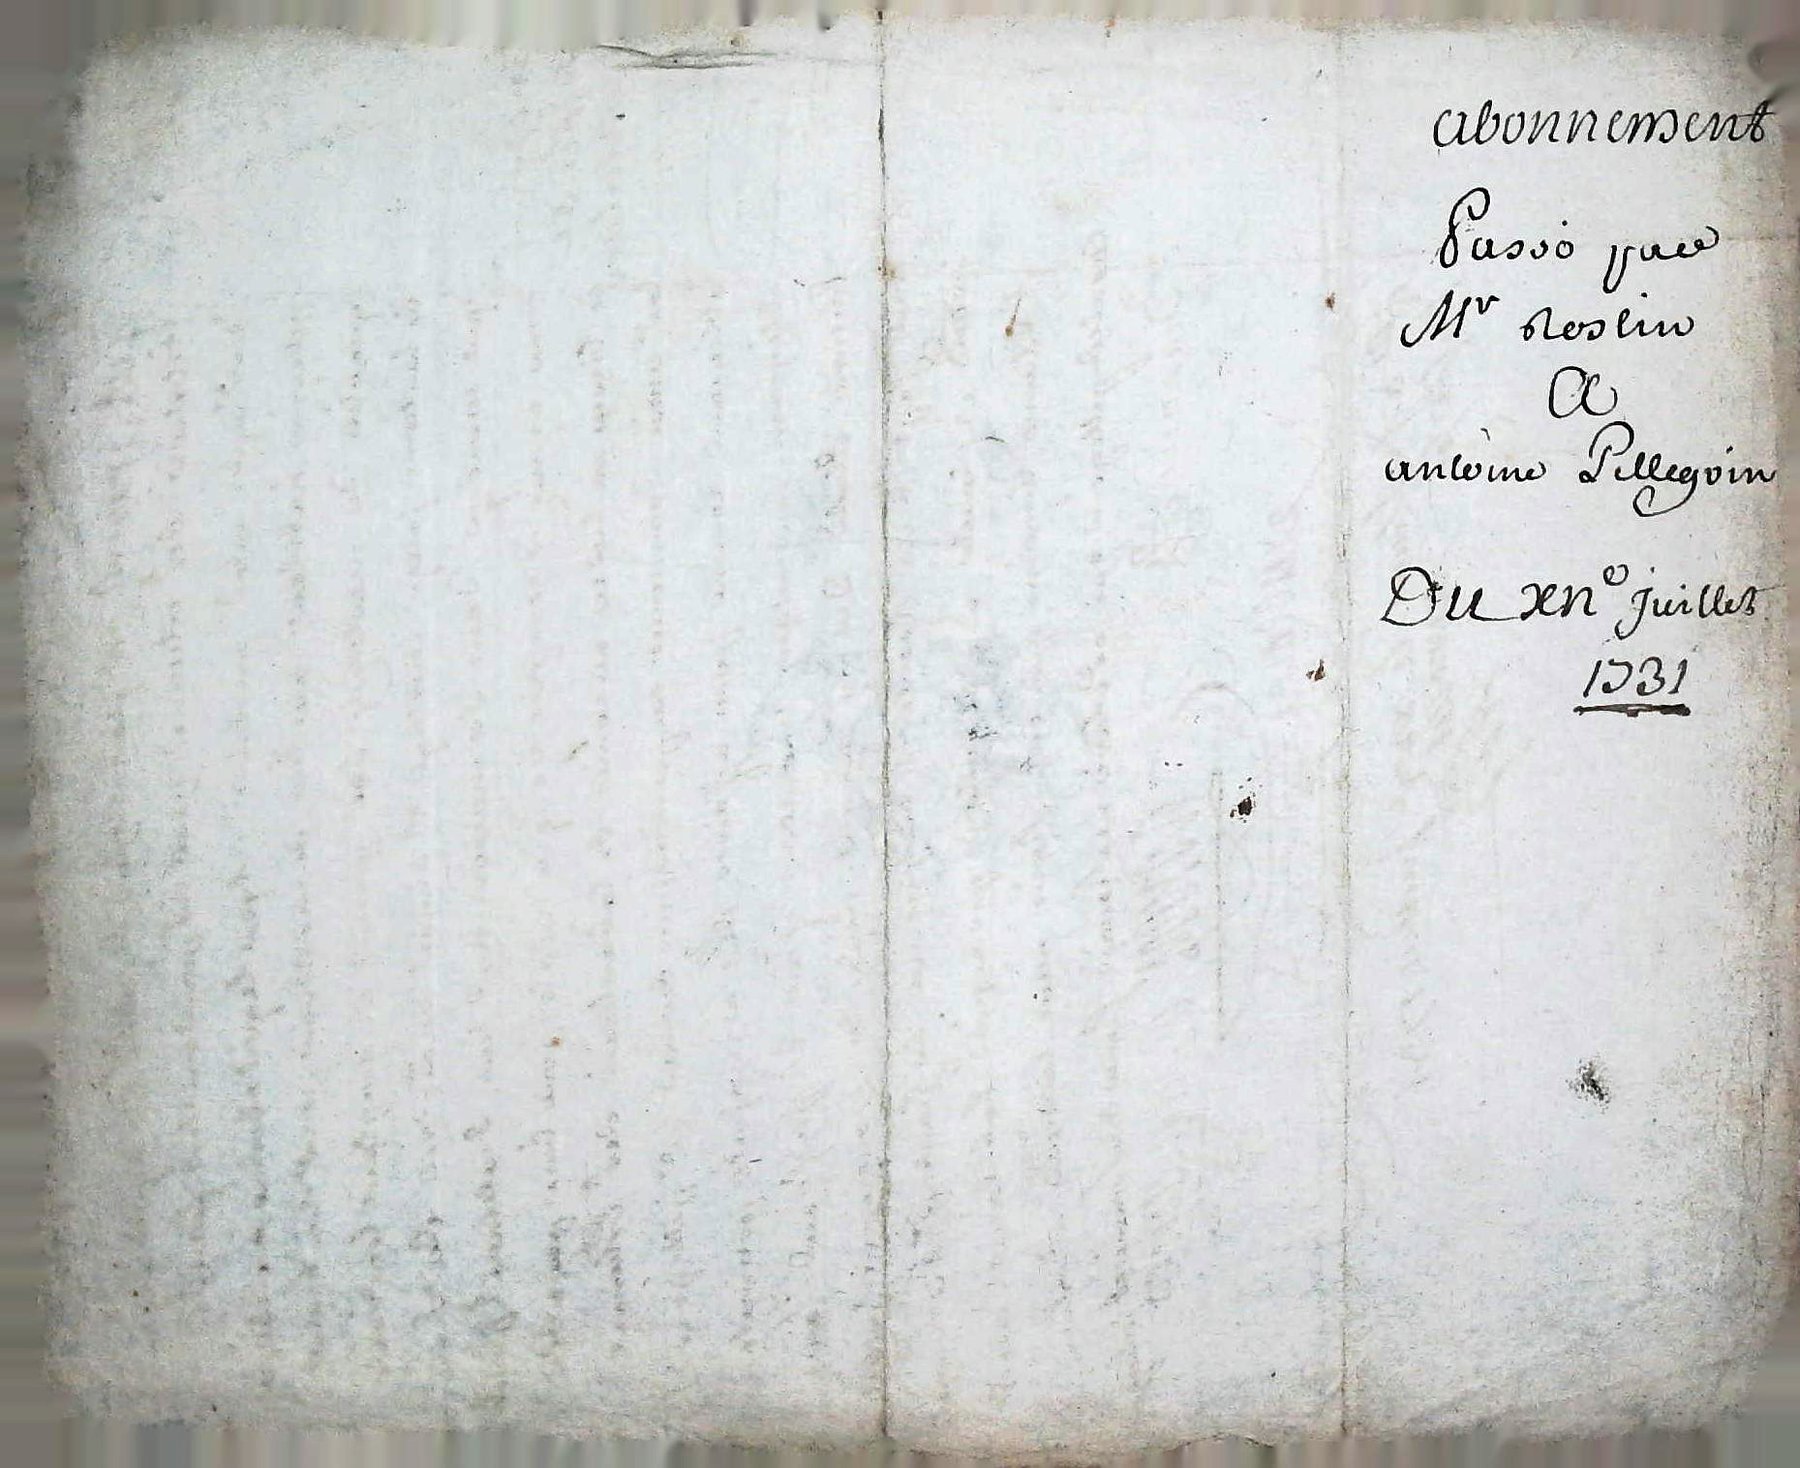 abonnement
Passé par
Mr roslin
A
antoine Pellegrin
Du xIIe juillet
1731